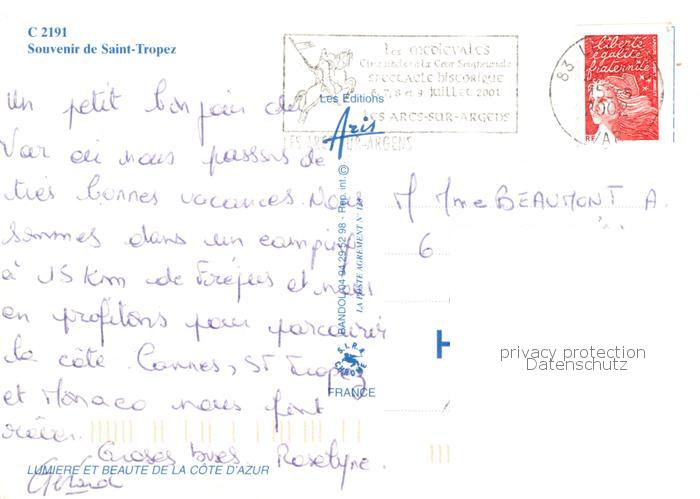 C 2191
Souvenir de Saint-Tropez
Les MEDIEVALES
SPECTACLE HISTORIQUE
6, 7, 8 et 9 Juillet 2001
LES ARCS-SUR-ARGENS
LES ARCS-SUR-ARGENS
83
liberté
égalité
fraternité
RF
Les Editions
Aris
Un petit bonjour du
Var où nous passons de
très bonnes vacances. Nous
sommes dans un camping
à 15 km de Fréjus et nous
en profitons pour parcourir
la côte. Cannes, St Tropez
et Monaco nous font
rêver.
Grosses bises. Roselyne.
Gérard
M Mme BEAUMONT A.
6
BANDOL 04 94 29 52 98 - Rep. int. ©
LA POSTE AGREMENT N°
S.I.R.A.
CHROME
FRANCE
privacy protection
Datenschutz
LUMIERE ET BEAUTE DE LA CÔTE D'AZUR